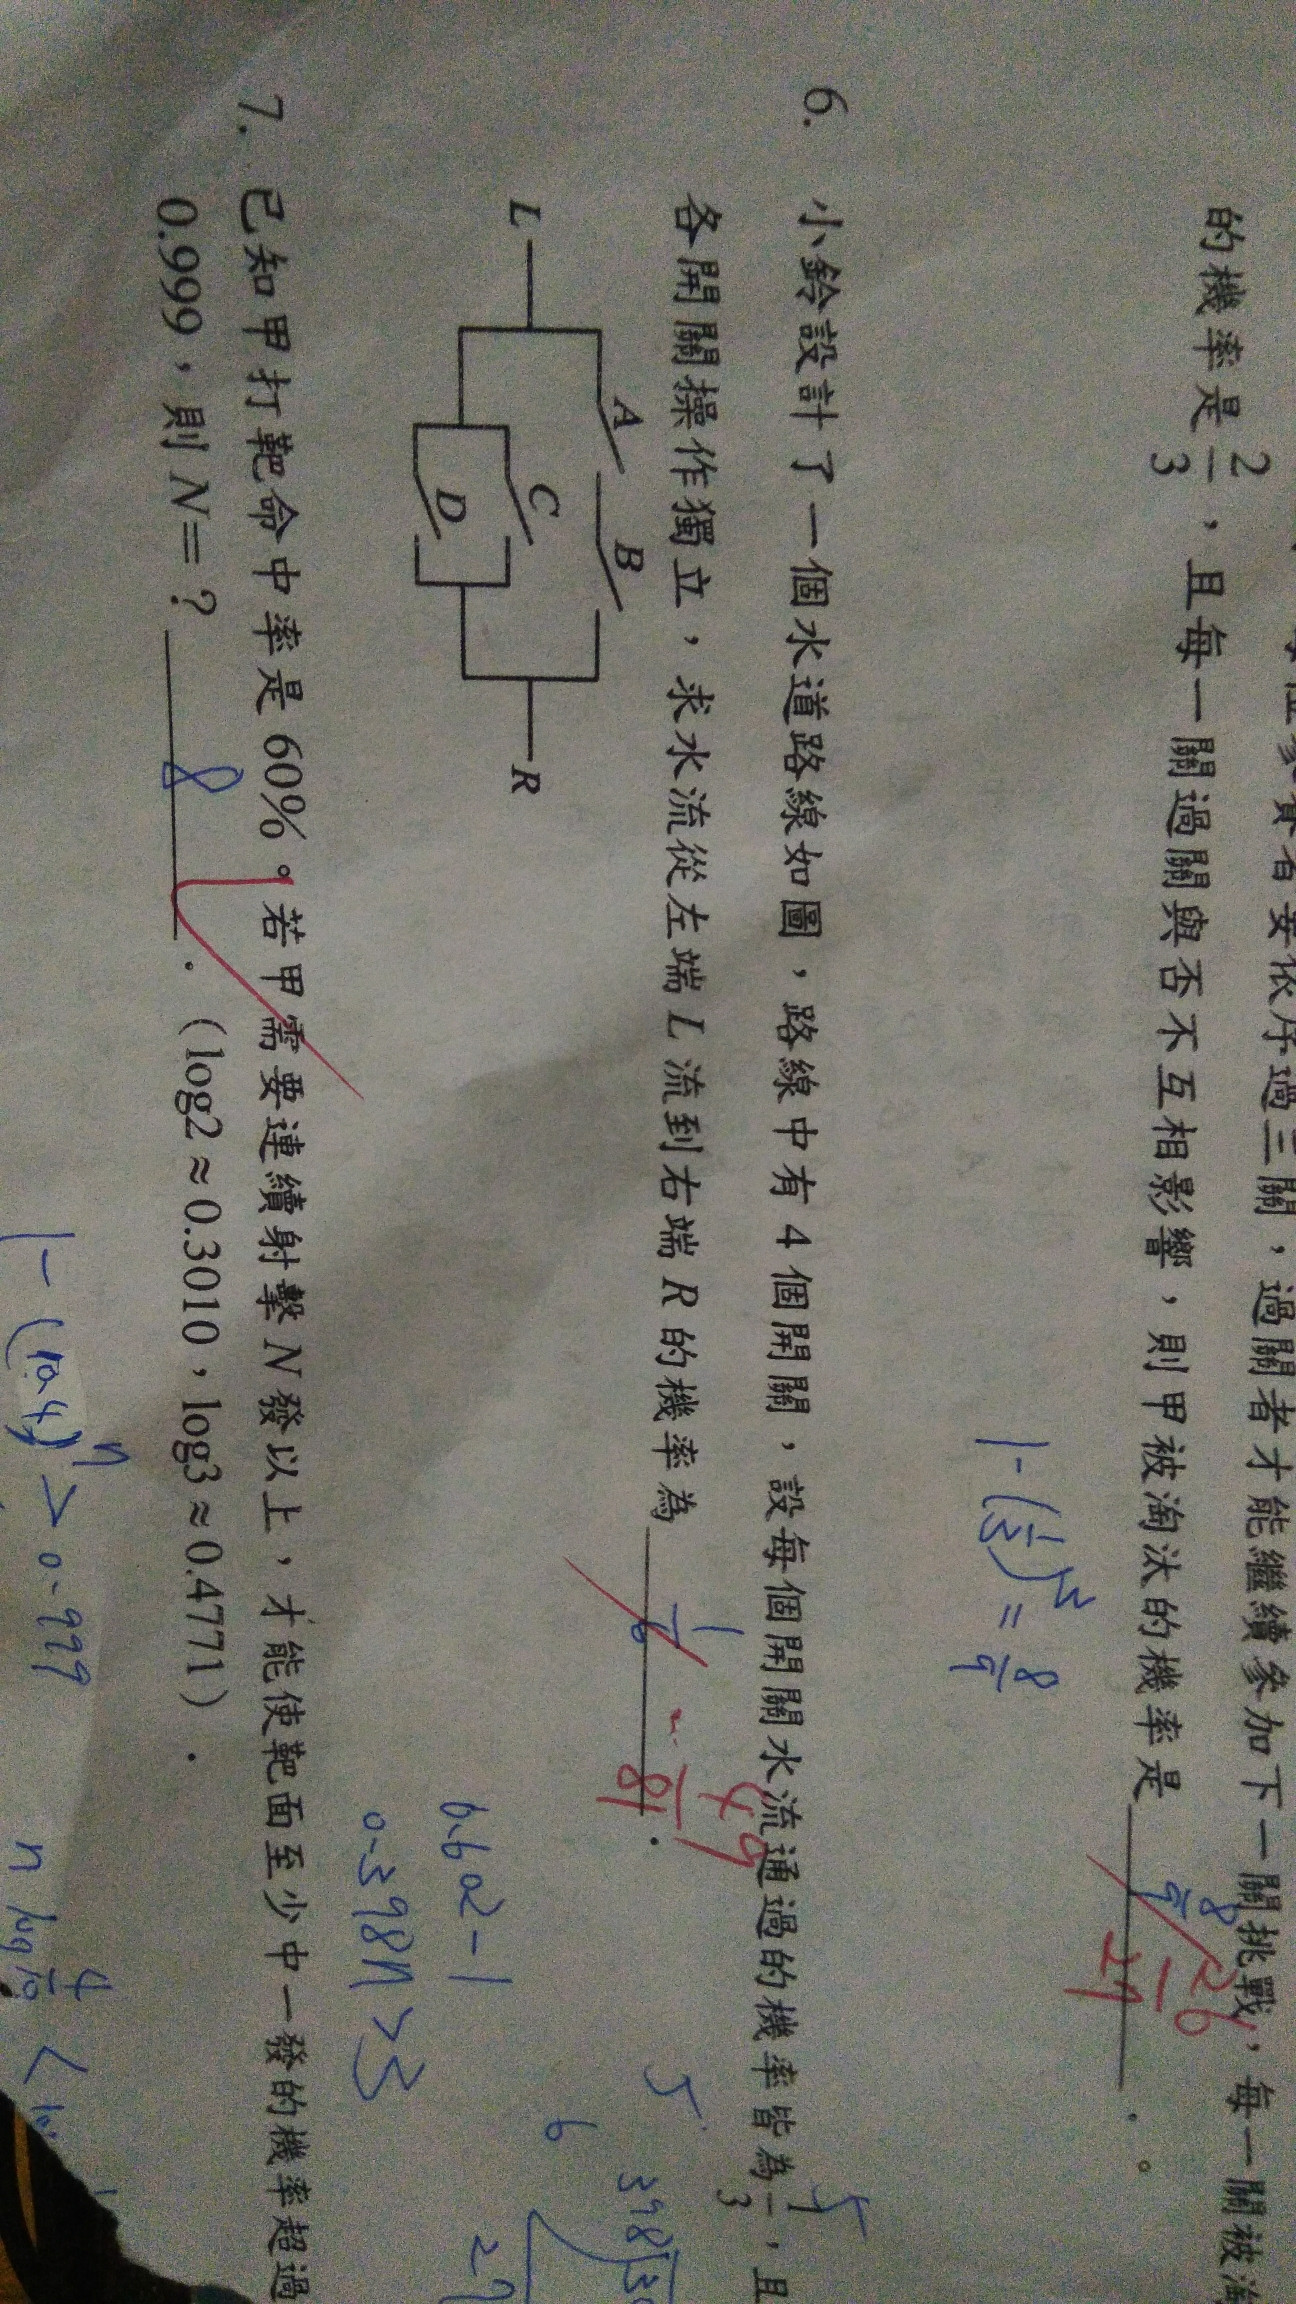 參賽者要依序過三關，過關者才能繼續參加下一關挑戰，每一關被淘
的機率是 2/3，且每一關過關與否不互相影響，則甲被淘汰的機率是 8/9 26/27 。
1-(1/3)² = 8/9
6. 小鈴設計了一個水道路線如圖，路線中有 4 個開關，設每個開關水流通過的機率皆為 1/3，且
各開關操作獨立，求水流從左端 L 流到右端 R 的機率為 49/81 .
L A B C D R
7. 已知甲打靶命中率是 60%。若甲需要連續射擊 N 發以上，才能使靶面至少中一發的機率超過
0.999，則 N=? 8 .（log2≈0.3010，log3≈0.4771）.
0.602-1
0.398n>3
1-(0.4)ⁿ > 0.999
n log 4/10 <